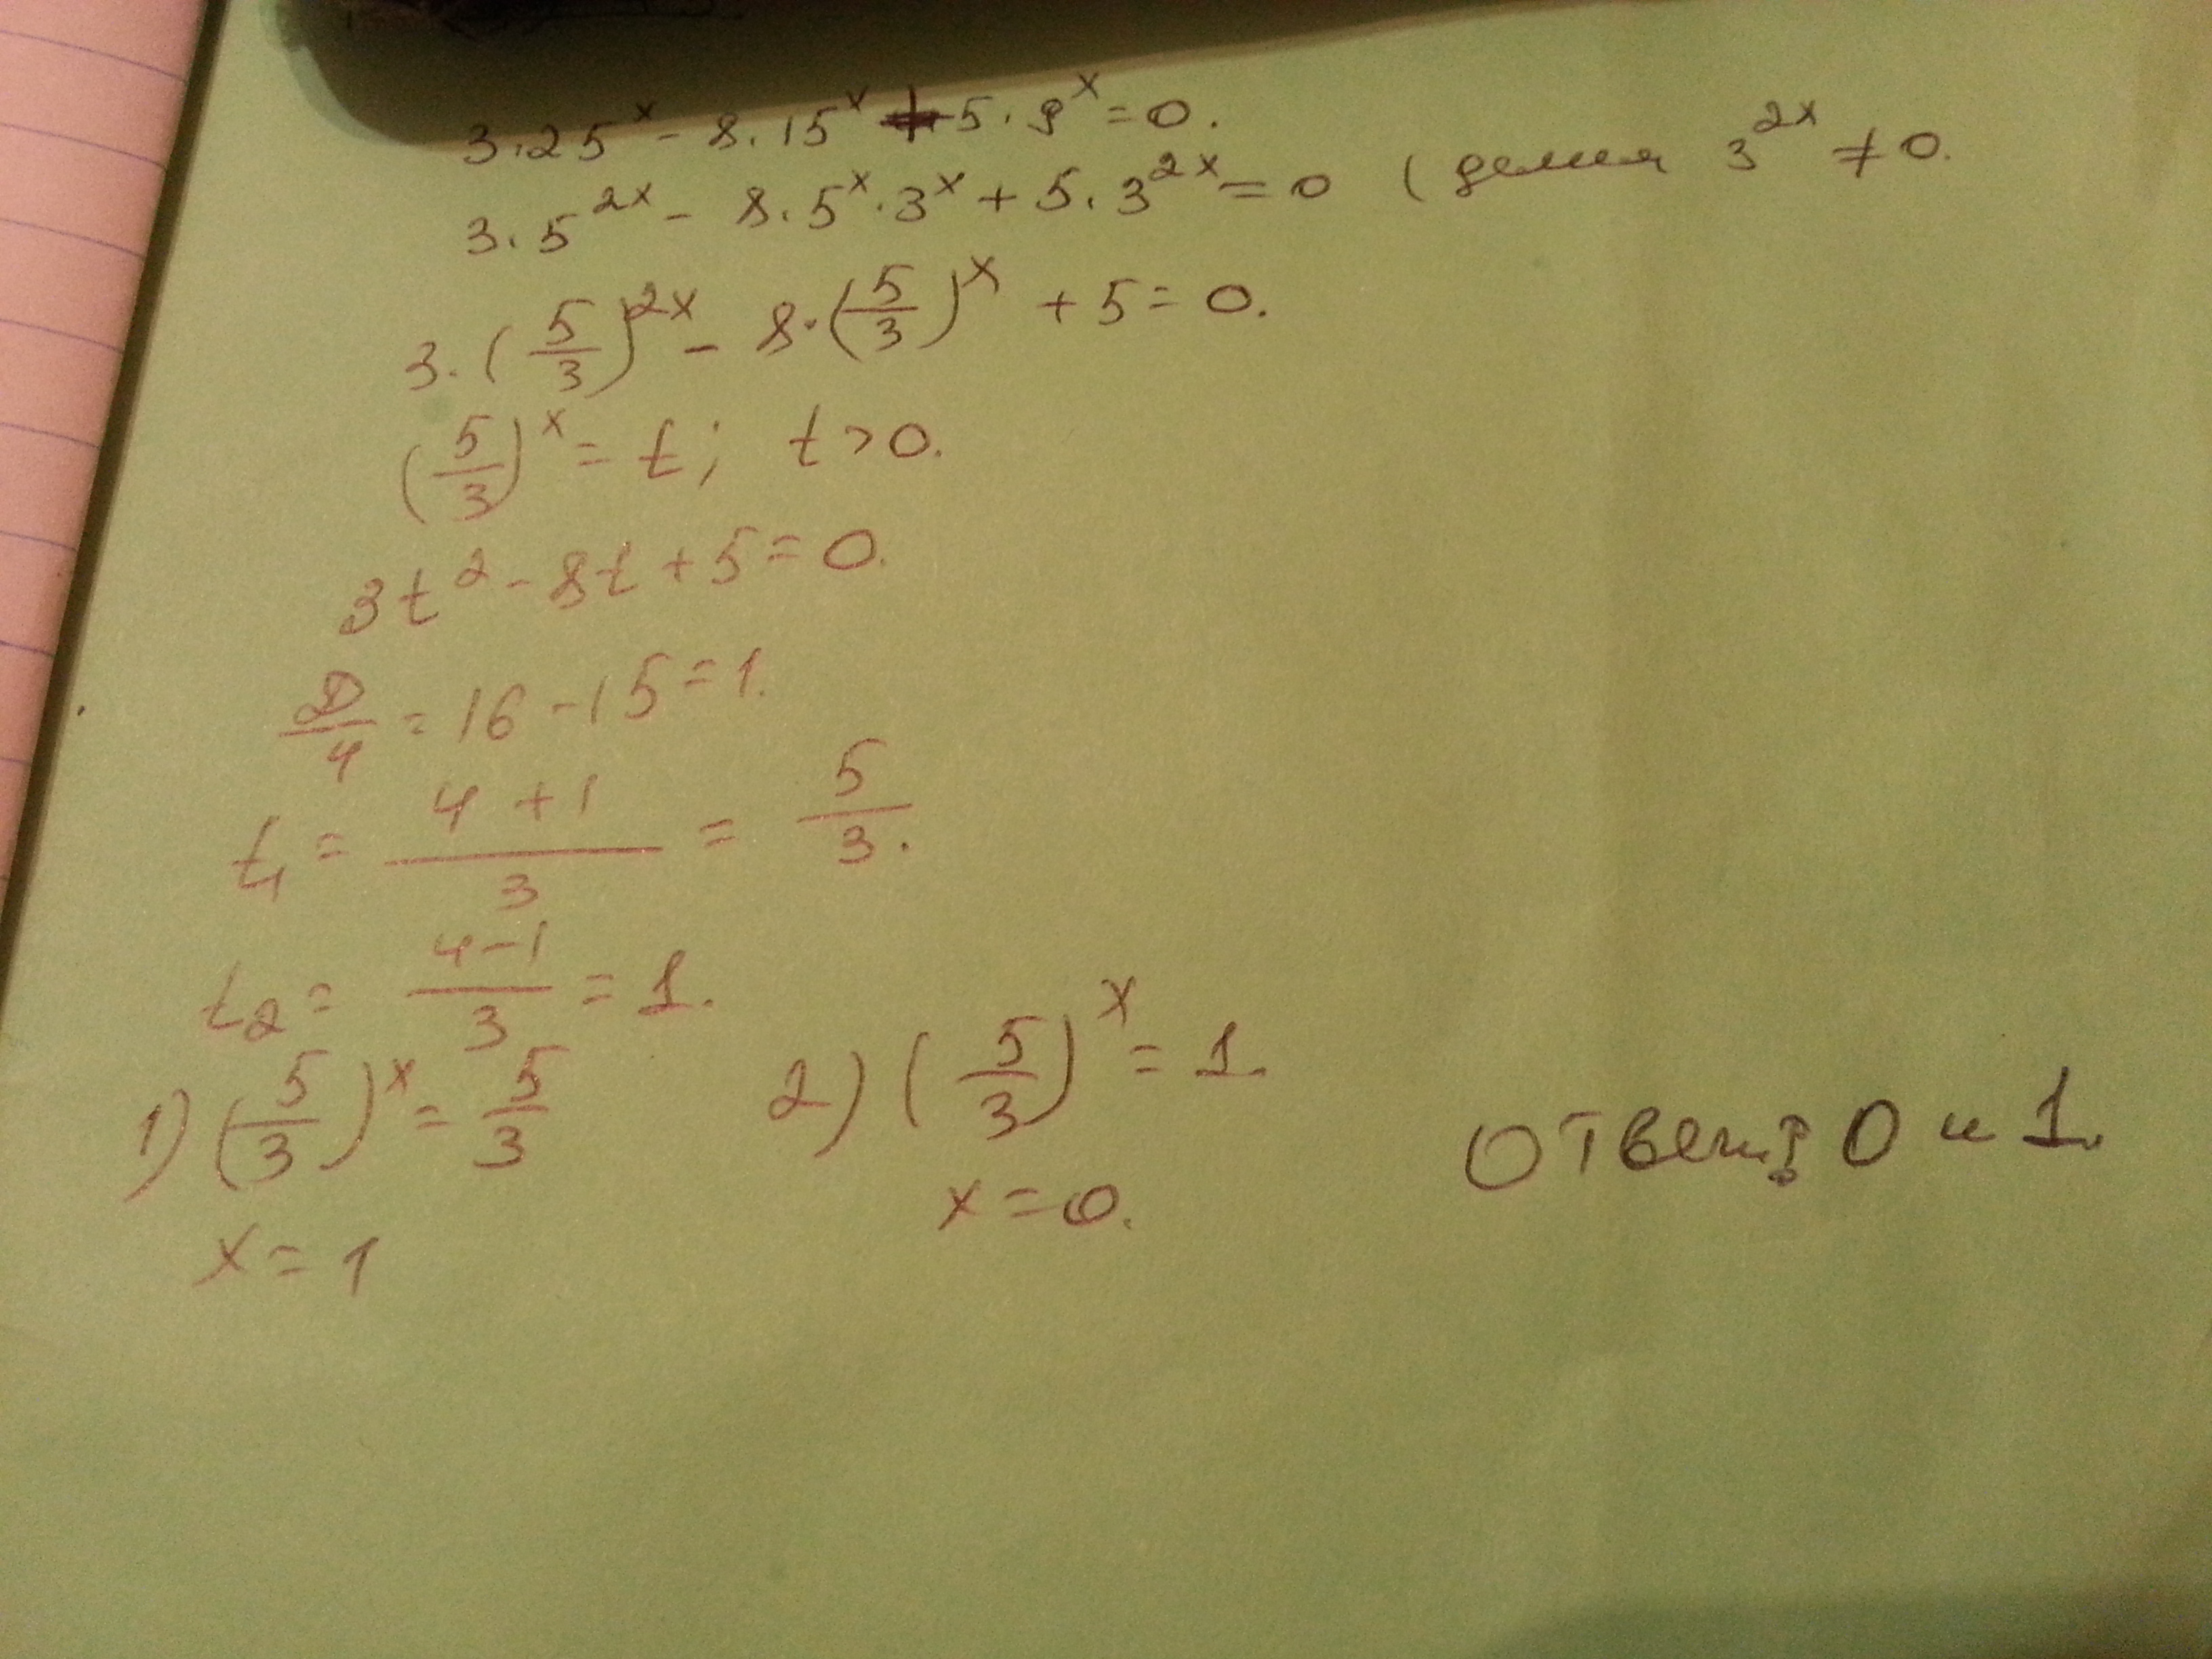 3·25^x - 8·15^x + 5·9^x = 0.
3·5^{2x} - 8·5^x·3^x + 5·3^{2x} = 0 (делим 3^{2x} ≠ 0.
3·(5/3)^{2x} - 8·(5/3)^x + 5 = 0.
(5/3)^x = t; t > 0.
3t² - 8t + 5 = 0.
D/4 = 16 - 15 = 1.
t₁ = (4 + 1)/3 = 5/3.
t₂ = (4 - 1)/3 = 1.
1) (5/3)^x = 5/3
x = 1
2) (5/3)^x = 1.
x = 0.
Ответ: 0 и 1.